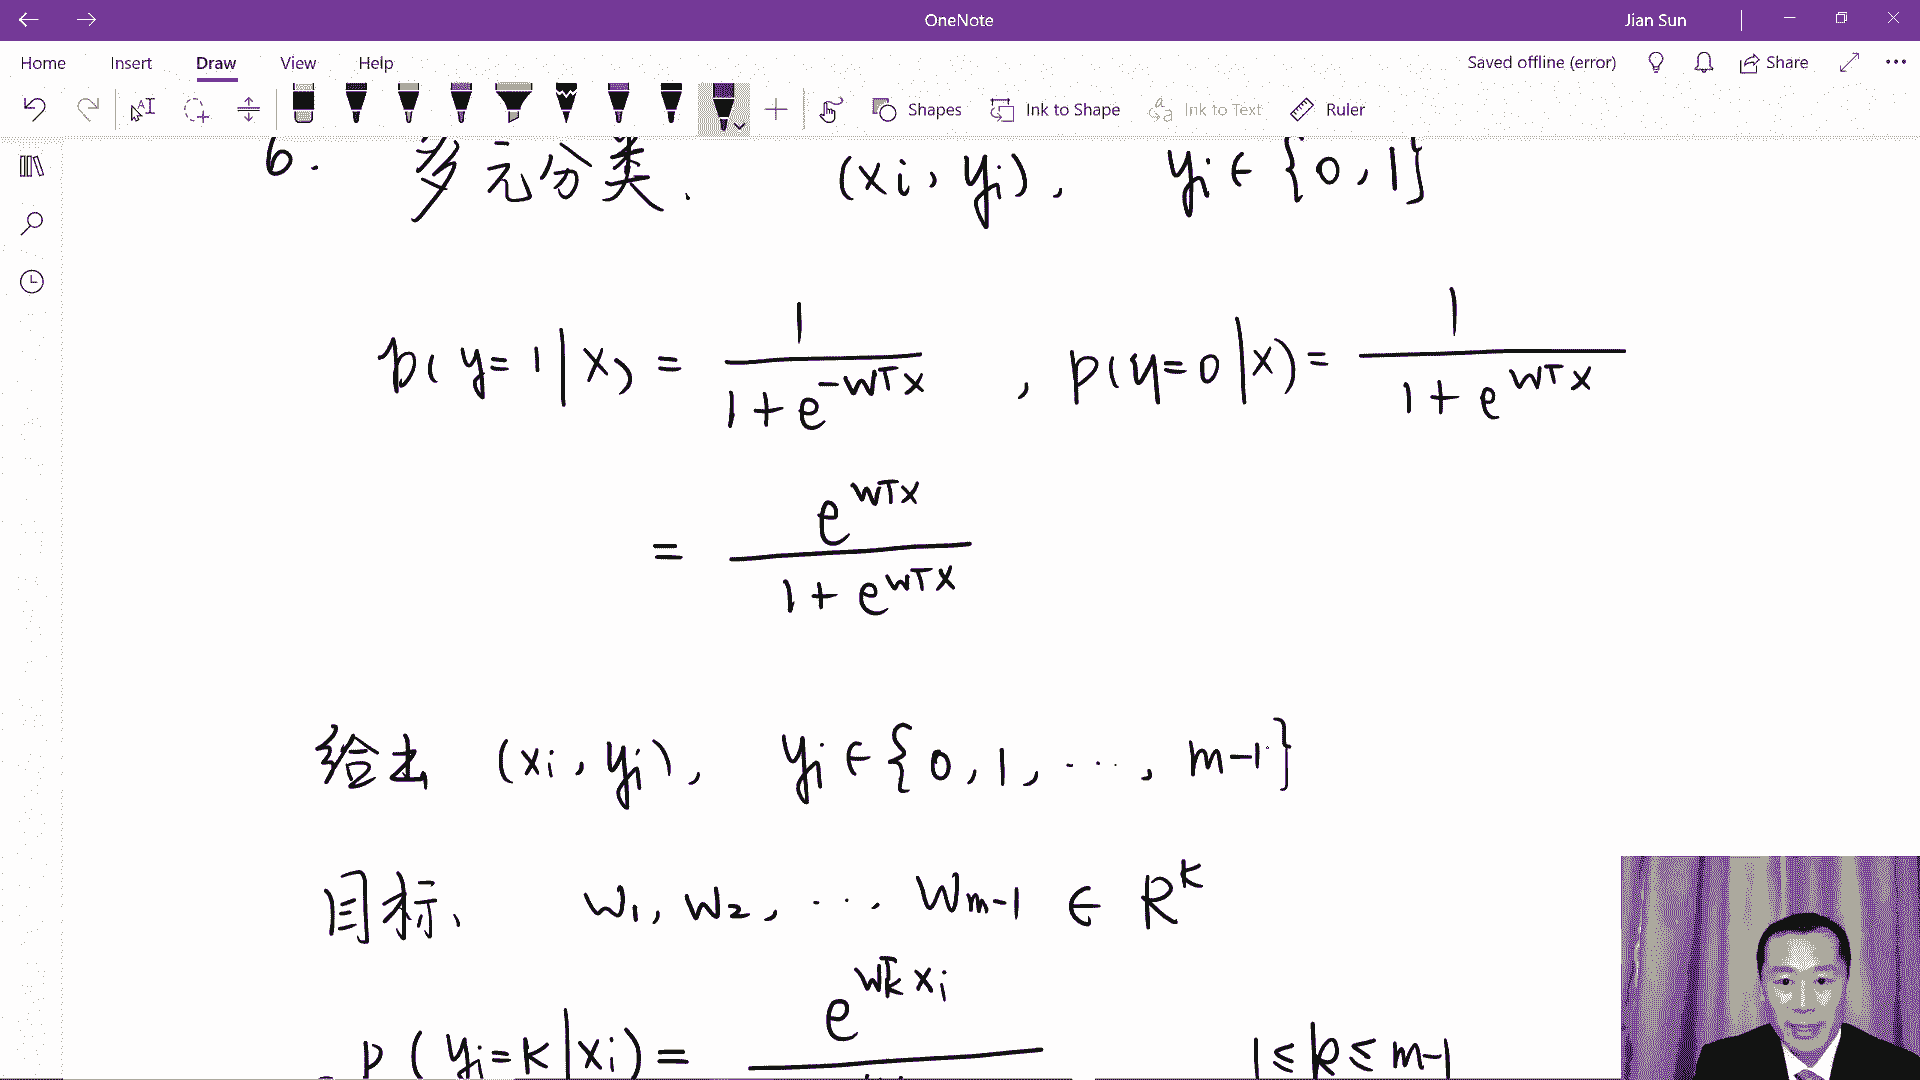 OneNote
Jian Sun
Home Insert Draw View Help
Saved offline (error) Share
Shapes Ink to Shape Ink to Text Ruler
6. 多元分类. (xi, yi), yi ∈ {0, 1}
p(y=1|x) = 1 / (1 + e^{-wᵀx}), p(y=0|x) = 1 / (1 + e^{wᵀx})
= e^{wᵀx} / (1 + e^{wᵀx})
给出 (xi, yi), yi ∈ {0, 1, ..., m-1}
目标. w₁, w₂, ... w_{m-1} ∈ R^k
p(yi=k|xi) = e^{w_kᵀ xi} 1 ≤ k ≤ m-1